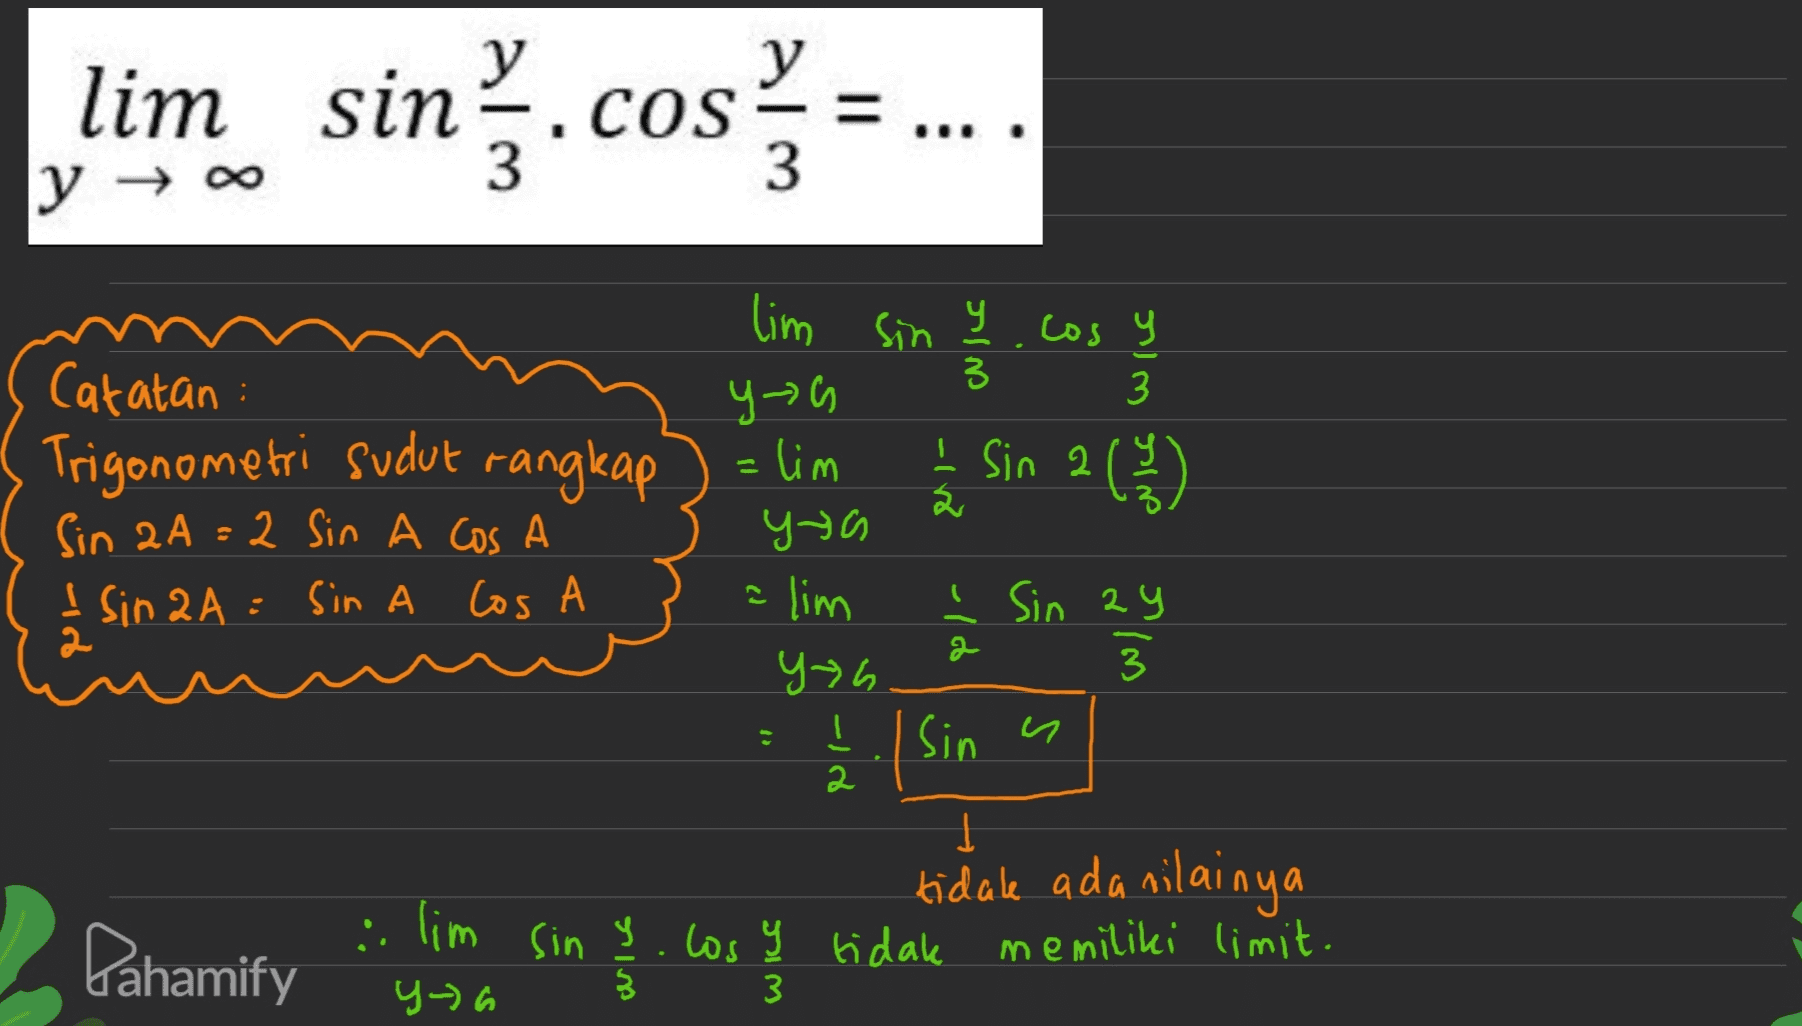 lim sin y/3 . cos y/3 = ... .
y → ∞
Catatan :
Trigonometri sudut rangkap
Sin 2A = 2 Sin A Cos A
1/2 Sin 2A = Sin A Cos A
lim sin y/3 . cos y/3
y→∞
= lim 1/2 Sin 2 (y/3)
y→∞
= lim 1/2 Sin 2y/3
y→∞
= 1/2 . Sin ∞
↓
tidak ada nilainya
∴ lim sin y/3 . cos y/3 tidak memiliki limit.
y→∞
Pahamify